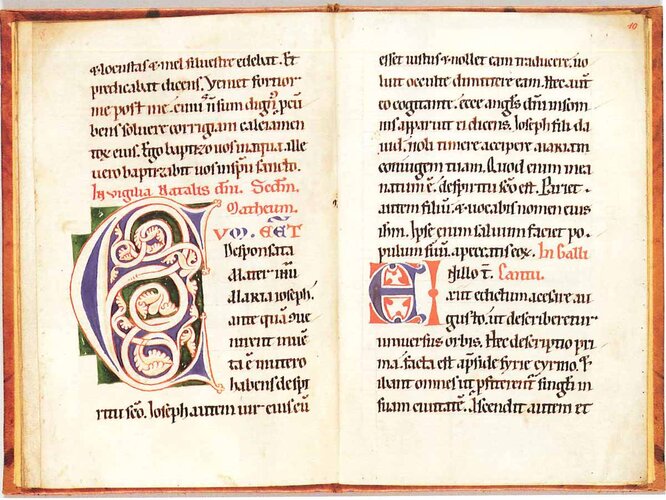 & locustas & mel siluestre edebat. Et
predicabat dicens. Veniet fortior
me post me. cui' n̄ sum dign' pcū
bens soluere corrigiam calciamen
toꝝ eius. Ego baptizo uos in aqua. ille
uero baptizabit uos in sp̄u sancto.
In vigilia Natalis dn̄i. Secdm̄.
Matheum.
CVM. EE͞T
Desponsata
Mater ih̄u
Maria ioseph.
ante quā ꝯue
nirent inuē
ta ē in utero
habens de spi
ritu sc̄o. Ioseph autem uir eius cū
10
esset iustus & nollet eam traducere. uo
luit occulte dimittere eam. Hec aut̄
eo cogitante. ecce angl̄s dn̄i in som
nis apparuit ei dicens. Ioseph fili da
uid. noli timere accipere Mariam
coniugem tuam. Quod enim in ea
natum ē. de spiritu sc̄o est. Pariet
autem filiū. & uocabis nomen eius
ih̄m. Ipse enim saluum faciet po
pulum suū. a peccatis eoꝝ. In Galli
Cantu.
Exiit edictum a cesare au
gusto. ut describeretur
uniuersus orbis. Hec descriptio pri
ma. facta est a p̄side syrie cyrino. &
ibant omnes ut ꝓfiterent̄ singl̄i in
suam ciuitatē. Ascendit autem et